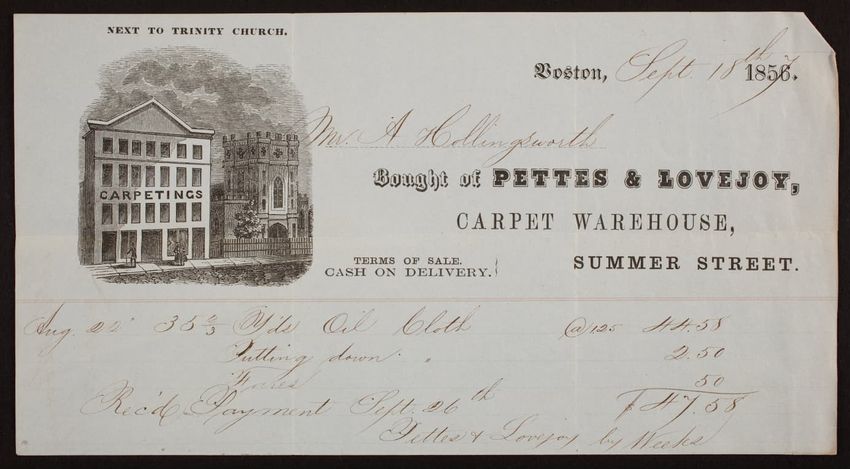 NEXT TO TRINITY CHURCH.
Boston, Sept. 18th 1856.7
Mr. A Hollingsworth
Bought of PETTES & LOVEJOY,
CARPETINGS
CARPET WAREHOUSE,
TERMS OF SALE.
CASH ON DELIVERY.
SUMMER STREET.
Aug. 22 35 2/3 Yds Oil Cloth @ 1.25 44.58
Putting down " 2.50
Fares 50
Rec'd Payment Sept. 26th $47.58
Pettes & Lovejoy by Weeks